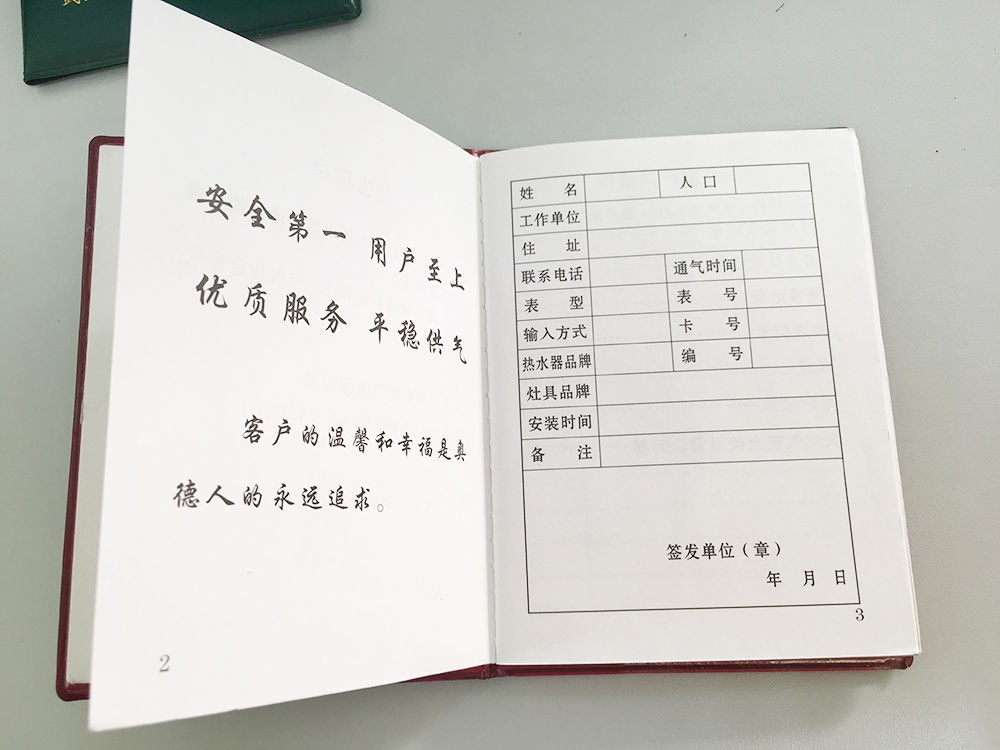 安全第一 用户至上
优质服务 平稳供气
客户的温馨和幸福是奥
德人的永远追求。
2
姓 名 人 口
工作单位
住 址
联系电话 通气时间
表 型 表 号
输入方式 卡 号
热水器品牌 编 号
灶具品牌
安装时间
备 注
签发单位（章）
年 月 日
3